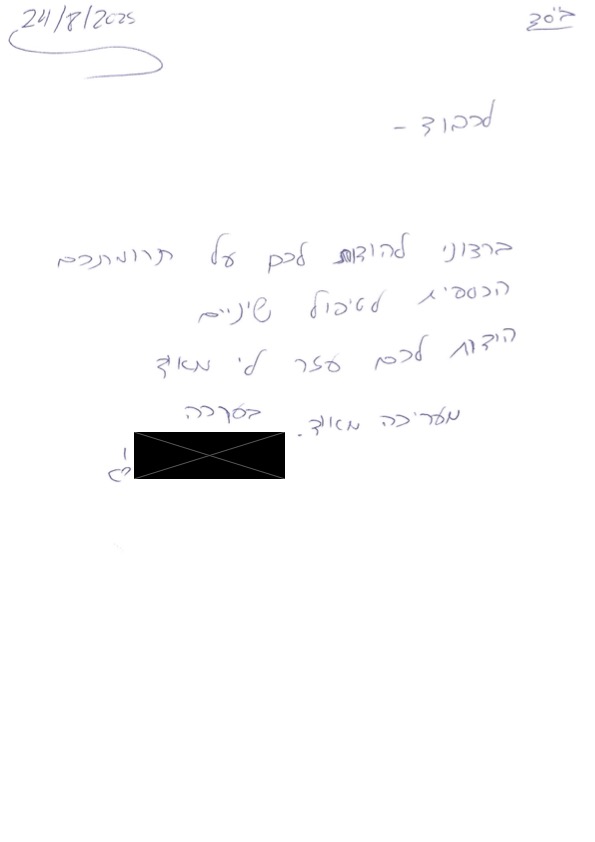 בס"ד
24/8/2025
לכבוד -
ברצוני להודות לכם על תרומתכם
הכספית לטיפול שיניים
הודות לכם עזר לי מאוד
מעריכה מאוד. בערכה